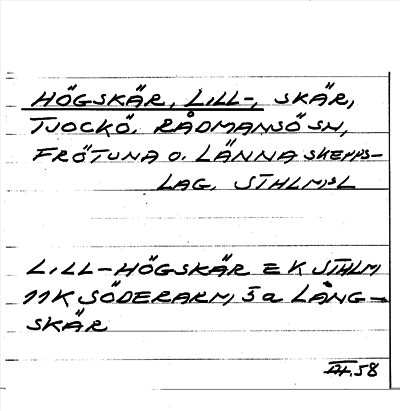 HÖGSKÄR, LILL-, SKÄR,
TJOCKÖ. RÅDMANSÖ SN,
FRÖTUNA O. LÄNNA SKEPPS-
LAG, STHLMSL
LILL-HÖGSKÄR EK STHLM
11K SÖDERARM, S a LÅNG-
SKÄR
58